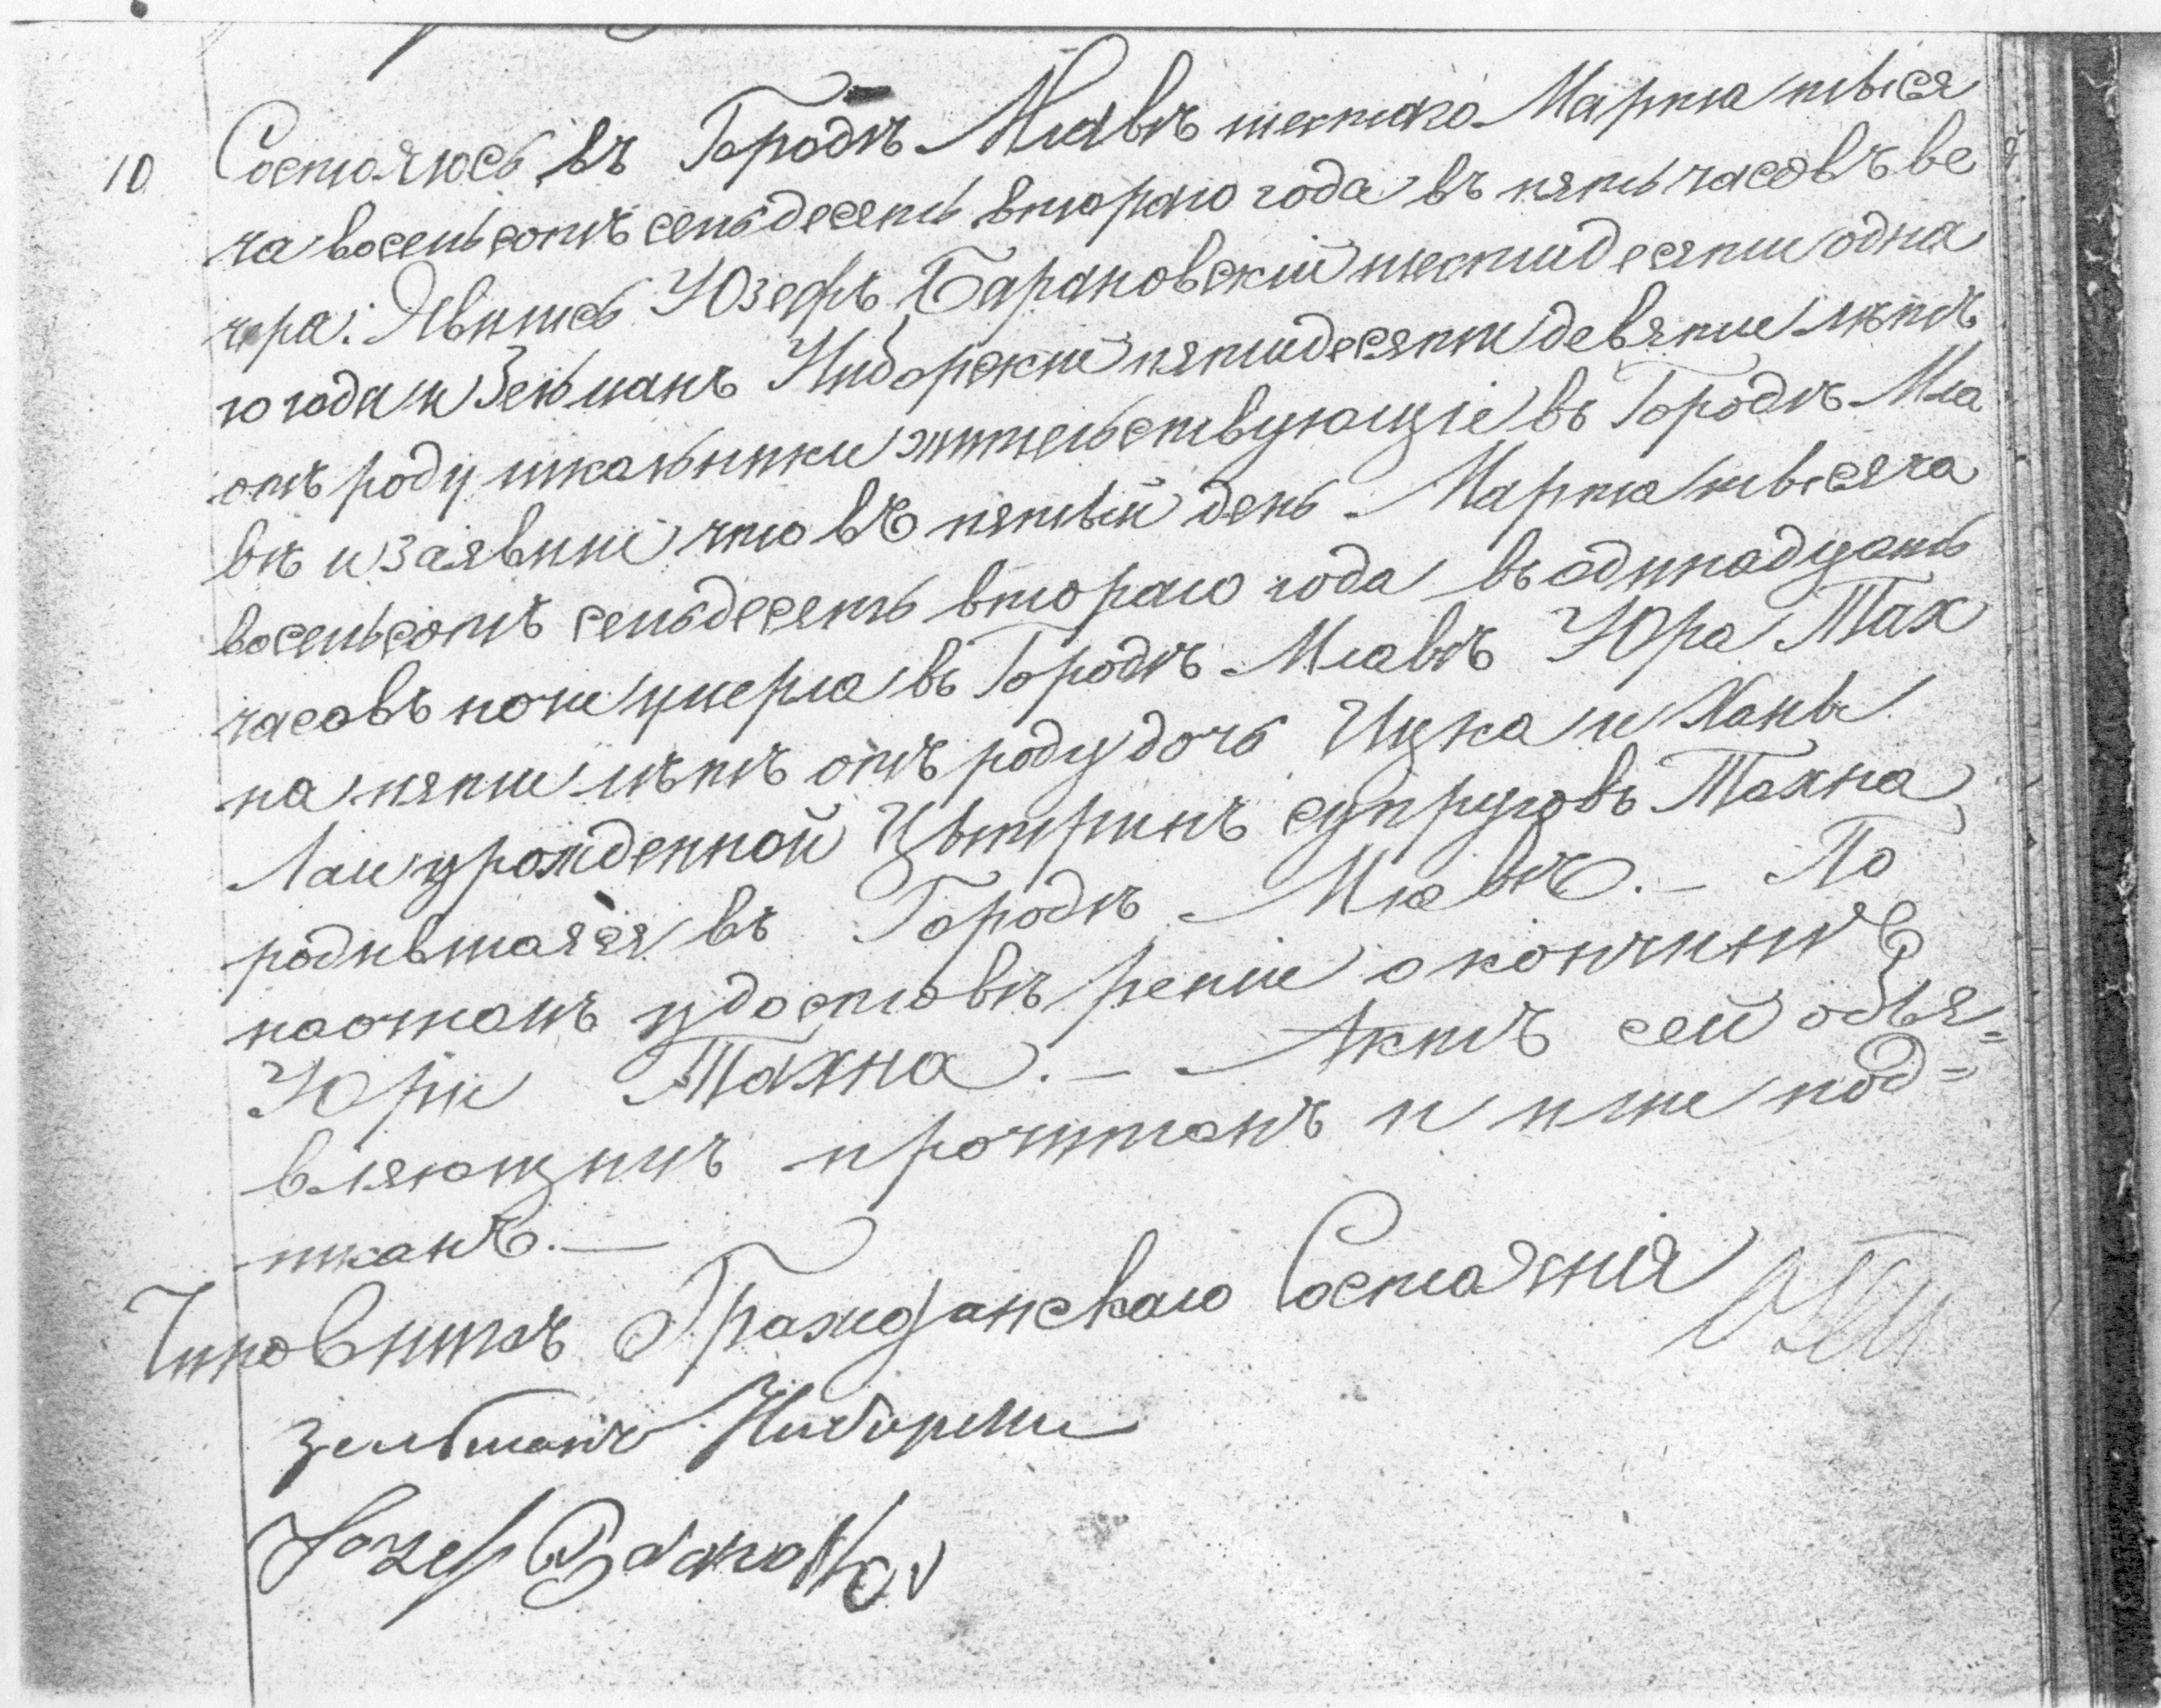 10 Состоялось въ Городѣ Млавѣ шестаго Марта тыся
ча восемьсотъ семьдесятъ втораго года въ пять часовъ ве
чера. Явились Юзефъ Барановскій шестидесяти одна
го года и Зельманъ Нидорскій пятидесяти девяти лѣтъ
отъ роду школьники жительствующіе въ Городѣ Мла
вѣ и заявили что въ пятый день Марта тысяча
восемьсотъ семьдесятъ втораго года въ одинадцать
часовъ ночи умерла въ Городѣ Млавѣ Юра Тах
на пяти лѣтъ отъ роду дочь Ицка и Ханы
Лаи урожденной Цытринъ супруговъ Тахна
родившаяся въ Городѣ Млавѣ. — По
настоящ удостовѣреніе о кончинѣ
Юри Тахна. — Актъ сей объя=
вляющимъ прочитанъ и ими под=
писанъ. —
Чиновникъ Гражданскаго Состоянія
Зельманъ Нидорски
Jozef